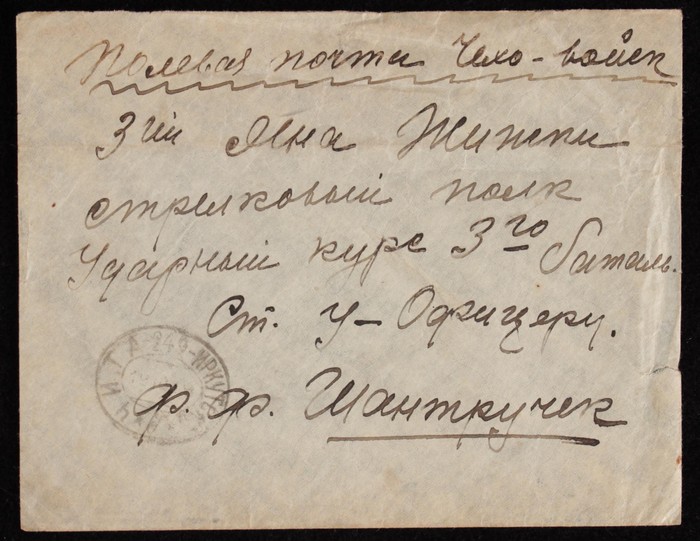 Полевая почта Чехо-войск
3ий Яна Жижки
стрелковый полк
Ударный курс 3го баталь.
Ст. У-Офицеру.
Ф. Ф. Шантручек
ЧИТА-249-ИРКУТСК